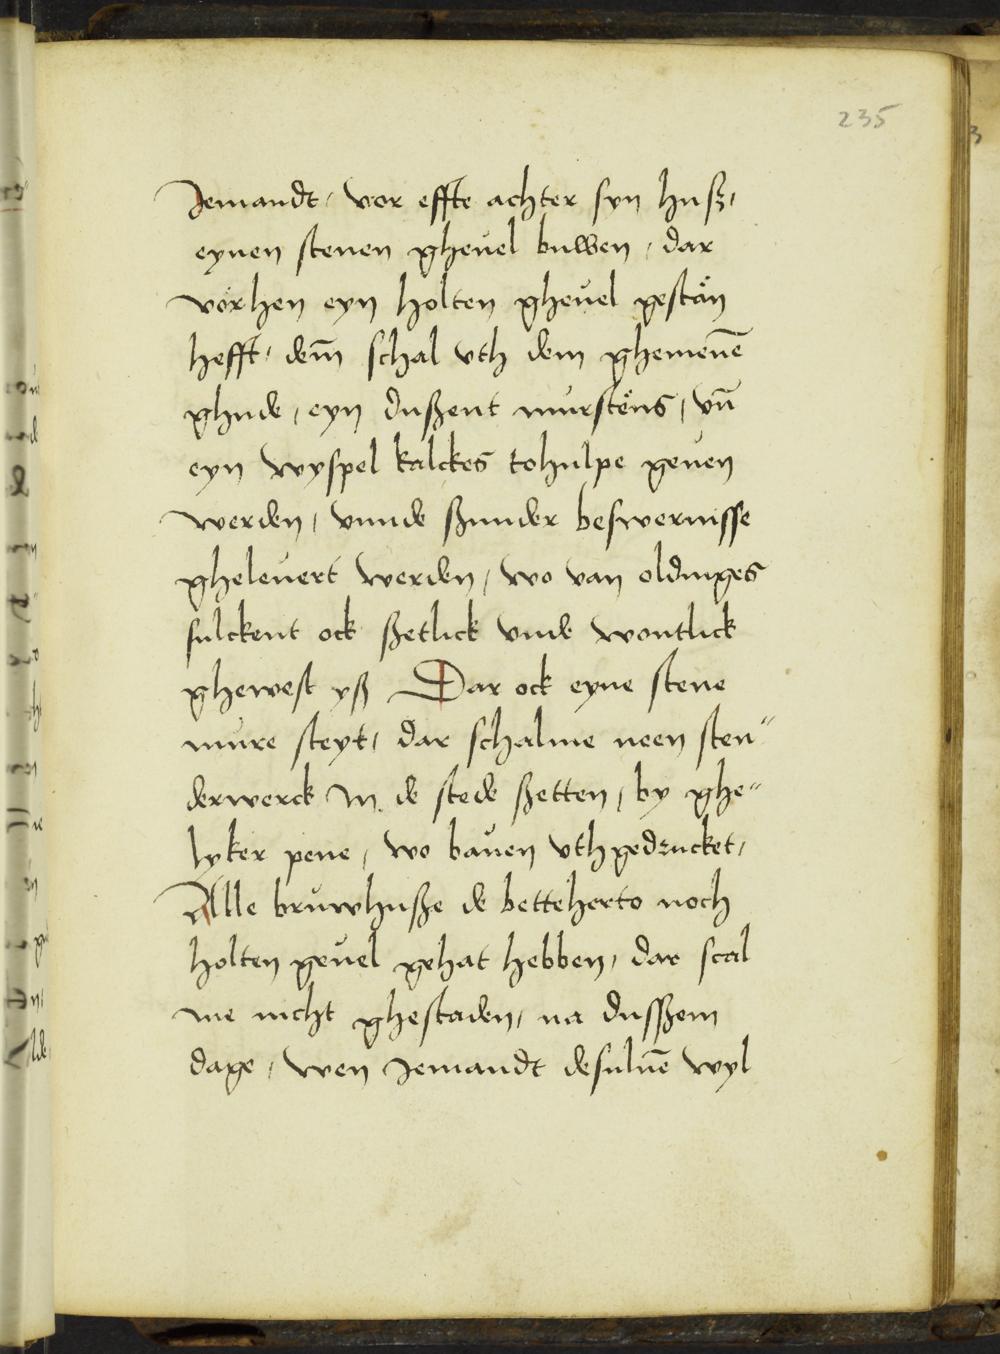 235
Jemandt, vor effte achter syn husz,
eynen stenen gheuel buwen, dar
vorhen eyn holten gheuel gestån
hefft, dem̄ schal vth dem ghemenē
ghude, eyn dußent murstens, vn̄
eyn wyspel kalckes tohulpe geuen
werden, vnnde ßunder beswernisse
gheleuert werden, wo van oldinges
sulckent ock ßetlick vnde wontlick
ghewest yß Dar ock eyne stene
mure steyt, dar schalme neen sten"
derwerck in de stede ßetten, by ghe"
lyker pene, wo bauen vthgedrucket,
Alle bruwhuße de betteherto noch
holten geuel gehat hebben, dar scal
me nicht ghestaden, na dusßem
dage, wen Jemandt desuluē wyl